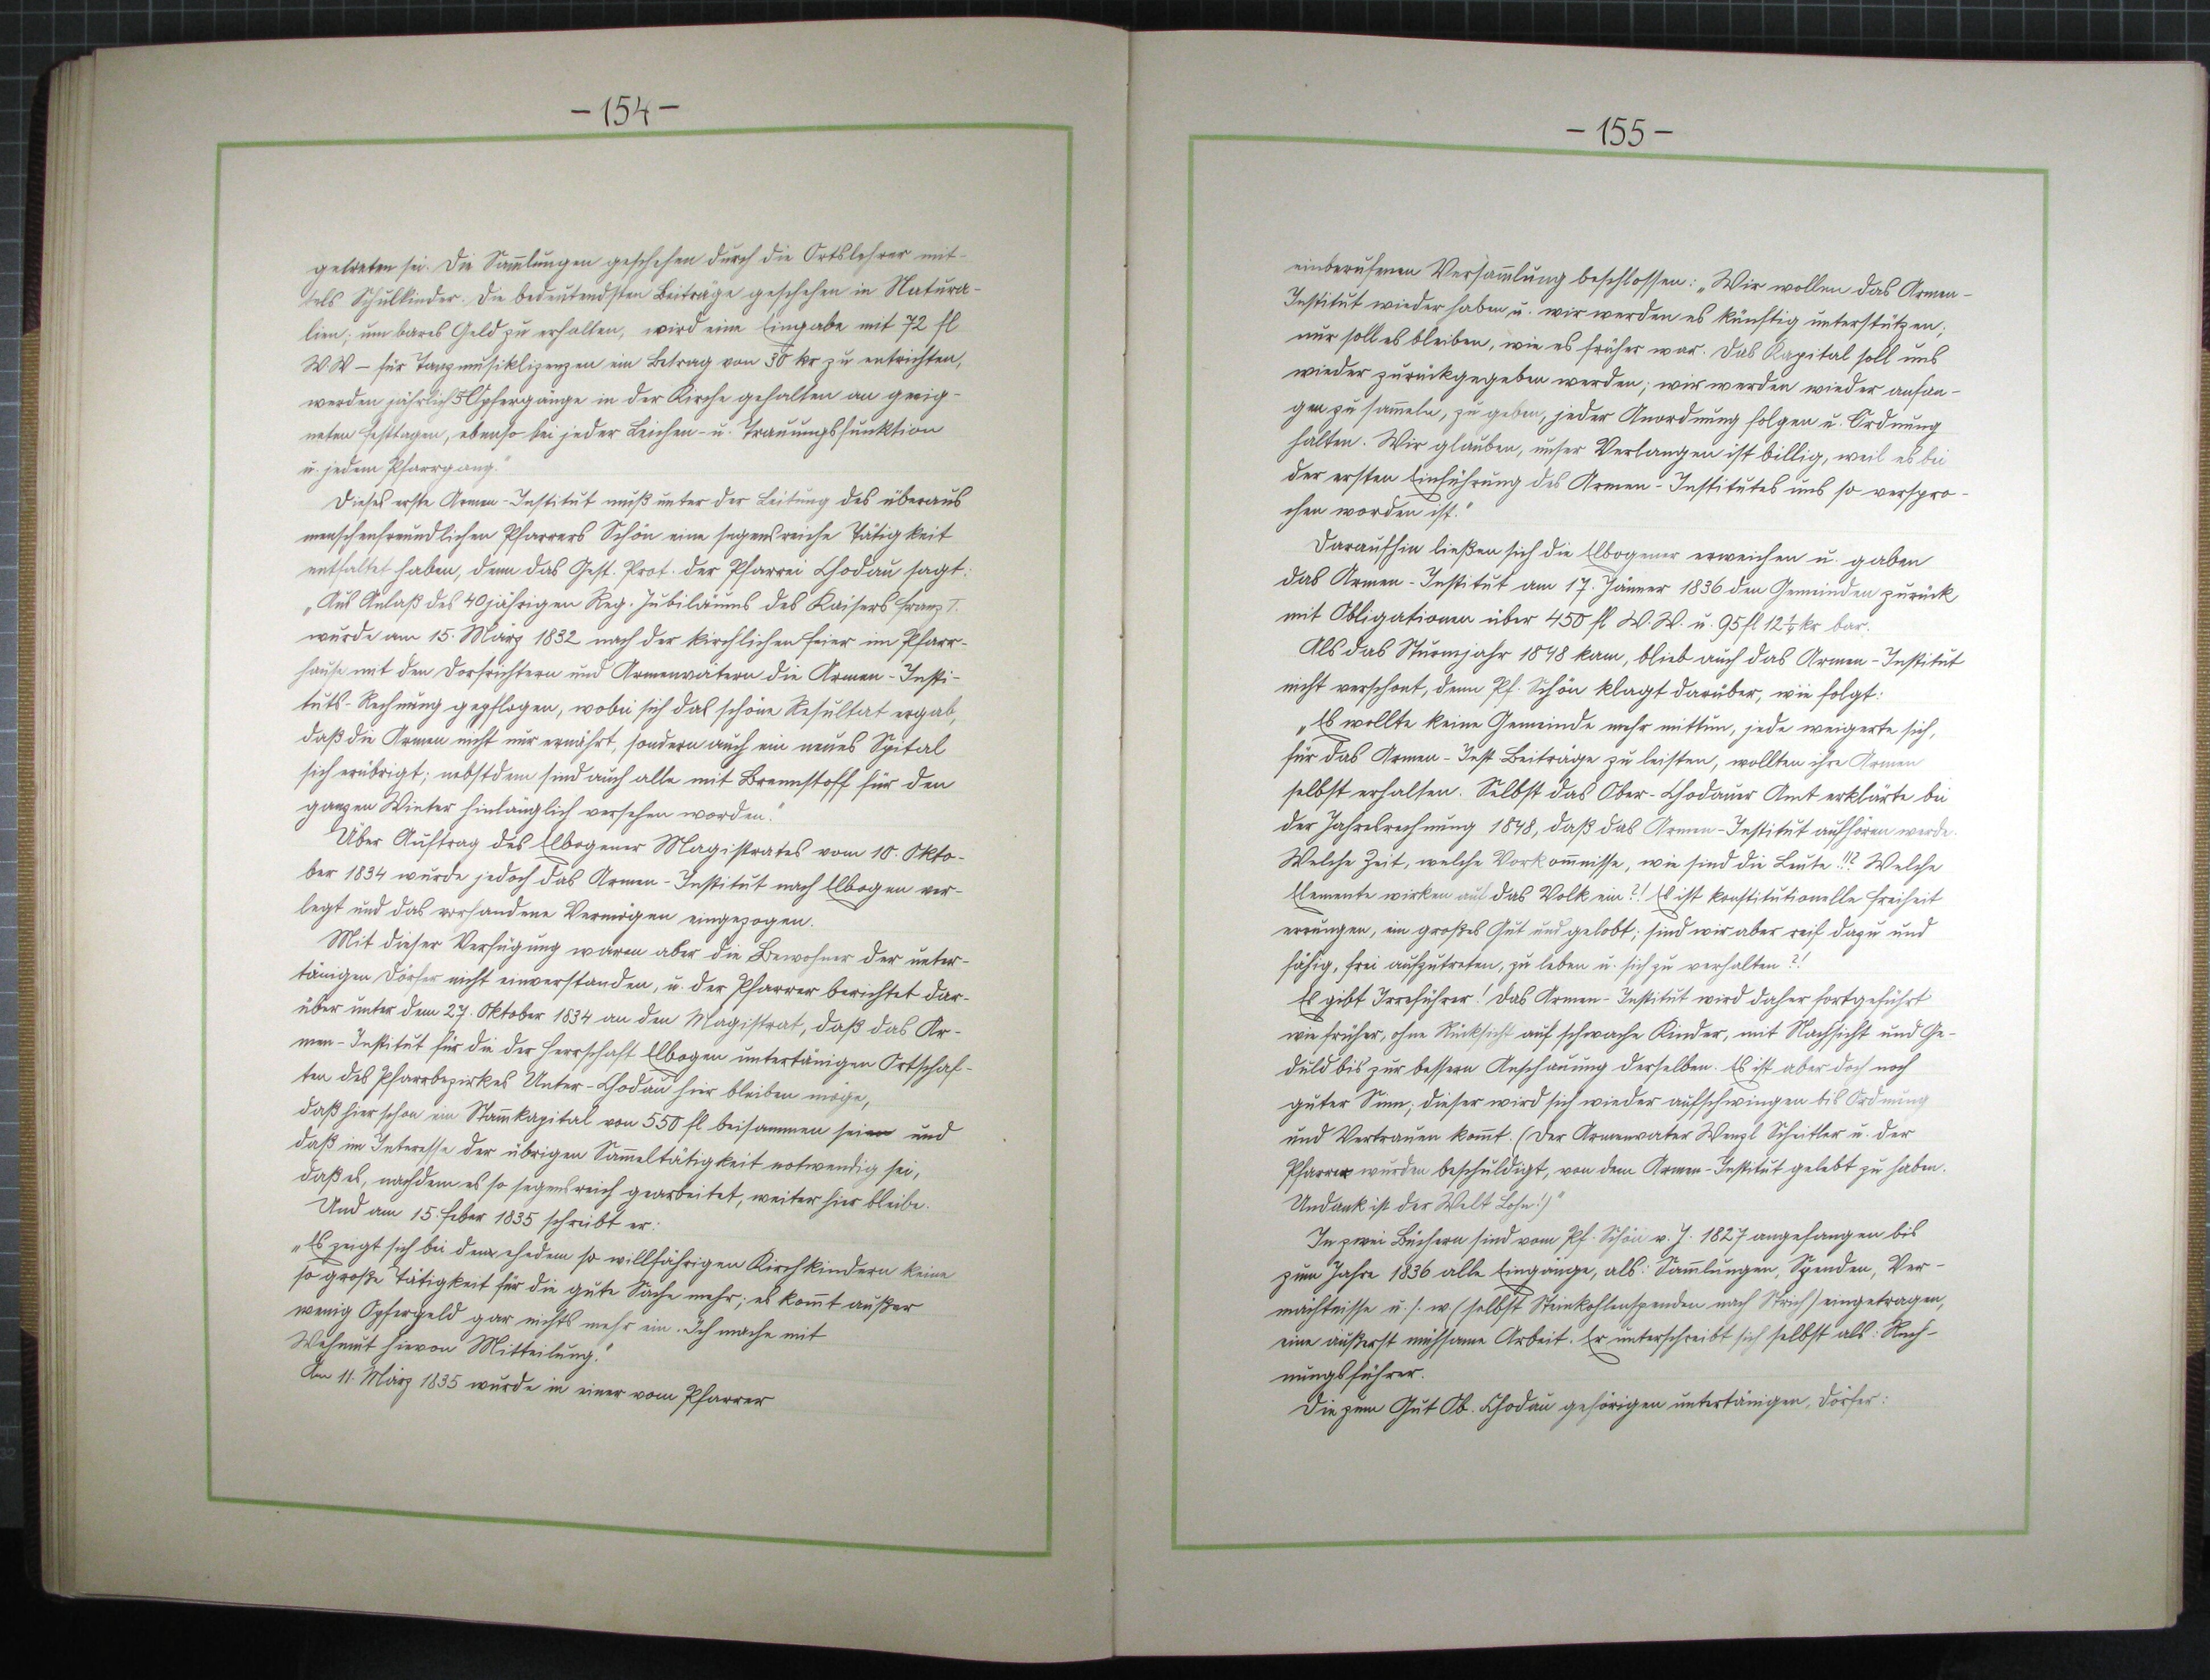 -154-
getreten sei. Die Sam̄lungen geschehen durch die Ortslehrer mit-
tels Schulkinder. Die bedeutendsten Beiträge geschehen in Natura-
lien; um bares Geld zu erhalten, wird eine Eingabe mit 72 fl
W. W – für Tanzmusiklizenzen ein Betrag von 30 kr zu entrichten,
werden jährlich 5 Opfergänge in der Kirche gehalten an geeig-
neten Festtagen, ebenso bei jeder Leichen- u. Trauungsfunktion
u. jedem Pfarrgang."
Dieses erste Armen-Institut muß unter der Leitung des überaus
menschenfreundlichen Pfarrers Schön eine segensreiche Tätigkeit
entfaltet haben, denn das Gest. Prot. der Pfarrei Chodau sagt:
„Aus Anlaß des 40jährigen Reg. Jubiläums des Kaisers Franz I.
wurde am 15. März 1832 nach der kirchlichen Feier im Pfarr-
hause mit den Dorfrichtern und Armenvätern die Armen-Insti-
tuts-Rechnung gepflogen, wobei sich das schöne Resultat ergab,
daß die Armen nicht nur ernährt, sondern auch ein neues Spital
sich erübrigt; nebstdem sind auch alle mit Brennstoff für den
ganzen Winter hinlänglich versehen worden."
Über Auftrag des Elbogener Magistrates vom 10. Okto-
ber 1834 wurde jedoch das Armen-Institut nach Elbogen ver-
legt und das vorhandene Vermögen eingezogen.
Mit dieser Verfügung waren aber die Bewohner der unter-
tänigen Dörfer nicht einverstanden, u. der Pfarrer berichtet dar-
über unter dem 27. Oktober 1834 an den Magistrat, daß das Ar-
men-Institut für die der Herrschaft Elbogen untertänigen Ortschaf-
ten des Pfarrbezirkes Unter-Chodau hier bleiben möge,
daß hier schon ein Stam̄kapital von 550 fl beisammen sei und
daß im Interesse der übrigen Sam̄eltätigkeit notwendig sei,
daß es, nachdem es so segensreich gearbeitet, weiter hier bleibe.
Und am 15. Feber 1835 schreibt er:
„Es zeigt sich bei den ehedem so willfährigen Kirchkindern keine
so große Tätigkeit für die gute Sache mehr; es kom̄t außer
wenig Opfergeld gar nichts mehr ein. Ich mache mit
Wehmut hievon Mitteilung."
Am 11. März 1835 wurde in einer vom Pfarrer
-155-
einberufenen Versam̄lung beschlossen: „Wir wollen das Armen-
Institut wieder haben u. wir werden es künftig unterstützen;
nur soll es bleiben, wie es früher war. Das Kapital soll uns
wieder zurückgegeben werden; wir werden wieder anfan-
gen zu sam̄eln, zu geben, jeder Anordnung folgen u. Ordnung
halten. Wir glauben, unser Verlangen ist billig, weil es bei
der ersten Einführung des Armen-Institutes uns so verspro-
chen worden ist."
Daraufhin ließen sich die Elbogener erweichen u. gaben
das Armen-Institut am 17. Jänner 1836 den Gemeinden zurück
mit Obligationen über 450 fl W. W. u. 95 fl 12 ¼ kr bar.
Als das Sturmjahr 1848 kam, blieb auch das Armen-Institut
nicht verschont, denn Pf. Schön klagt darüber, wie folgt:
„Es wollte keine Gemeinde mehr mittun, jede weigerte sich,
für das Armen-Inst Beiträge zu leisten, wollten ihre Armen
selbst erhalten. Selbst das Ober-Chodauer Amt erklärte bei
der Jahresrechnung 1848, daß das Armen-Institut aufhören werde.
Welche Zeit, welche Vorkom̄nisse, wie sind die Leute!!? Welche
Elemente wirken auf das Volk ein?! Es ist konstitutionelle Freiheit
errungen, ein großes Gut und gelobt; sind wir aber reif dazu und
fähig, frei aufzutreten, zu leben u. sich zu verhalten?!
Es gibt Irreführer! Das Armen-Institut wird daher fortgeführt
wie früher, ohne Rücksicht auf schwache Kinder, mit Nachsicht und Ge-
duld bis zur bessern Anschauung derselben. Es ist aber doch noch
guter Sinn; dieser wird sich wieder aufschwingen bis Ordnung
und Vertrauen kom̄t. (Der Armenvater Wenzl Scheitler u. der
Pfarrer wurden beschuldigt, von dem Armen-Institut gelebt zu haben.
Undank ist der Welt Lohn!)"
In zwei Büchern sind vom Pf. Schön v. J. 1827 angefangen bis
zum Jahre 1836 alle Eingänge, als: Sam̄lungen, Spenden, Ver-
mächtnisse u. s. w. (selbst Steinkohlenspenden nach Strich) eingetragen,
eine äußerst mühsame Arbeit. Er unterschreibt sich selbst als: Rech-
nungsführer.
Die zum Gut Ob. Chodau gehörigen untertänigen Dörfer: